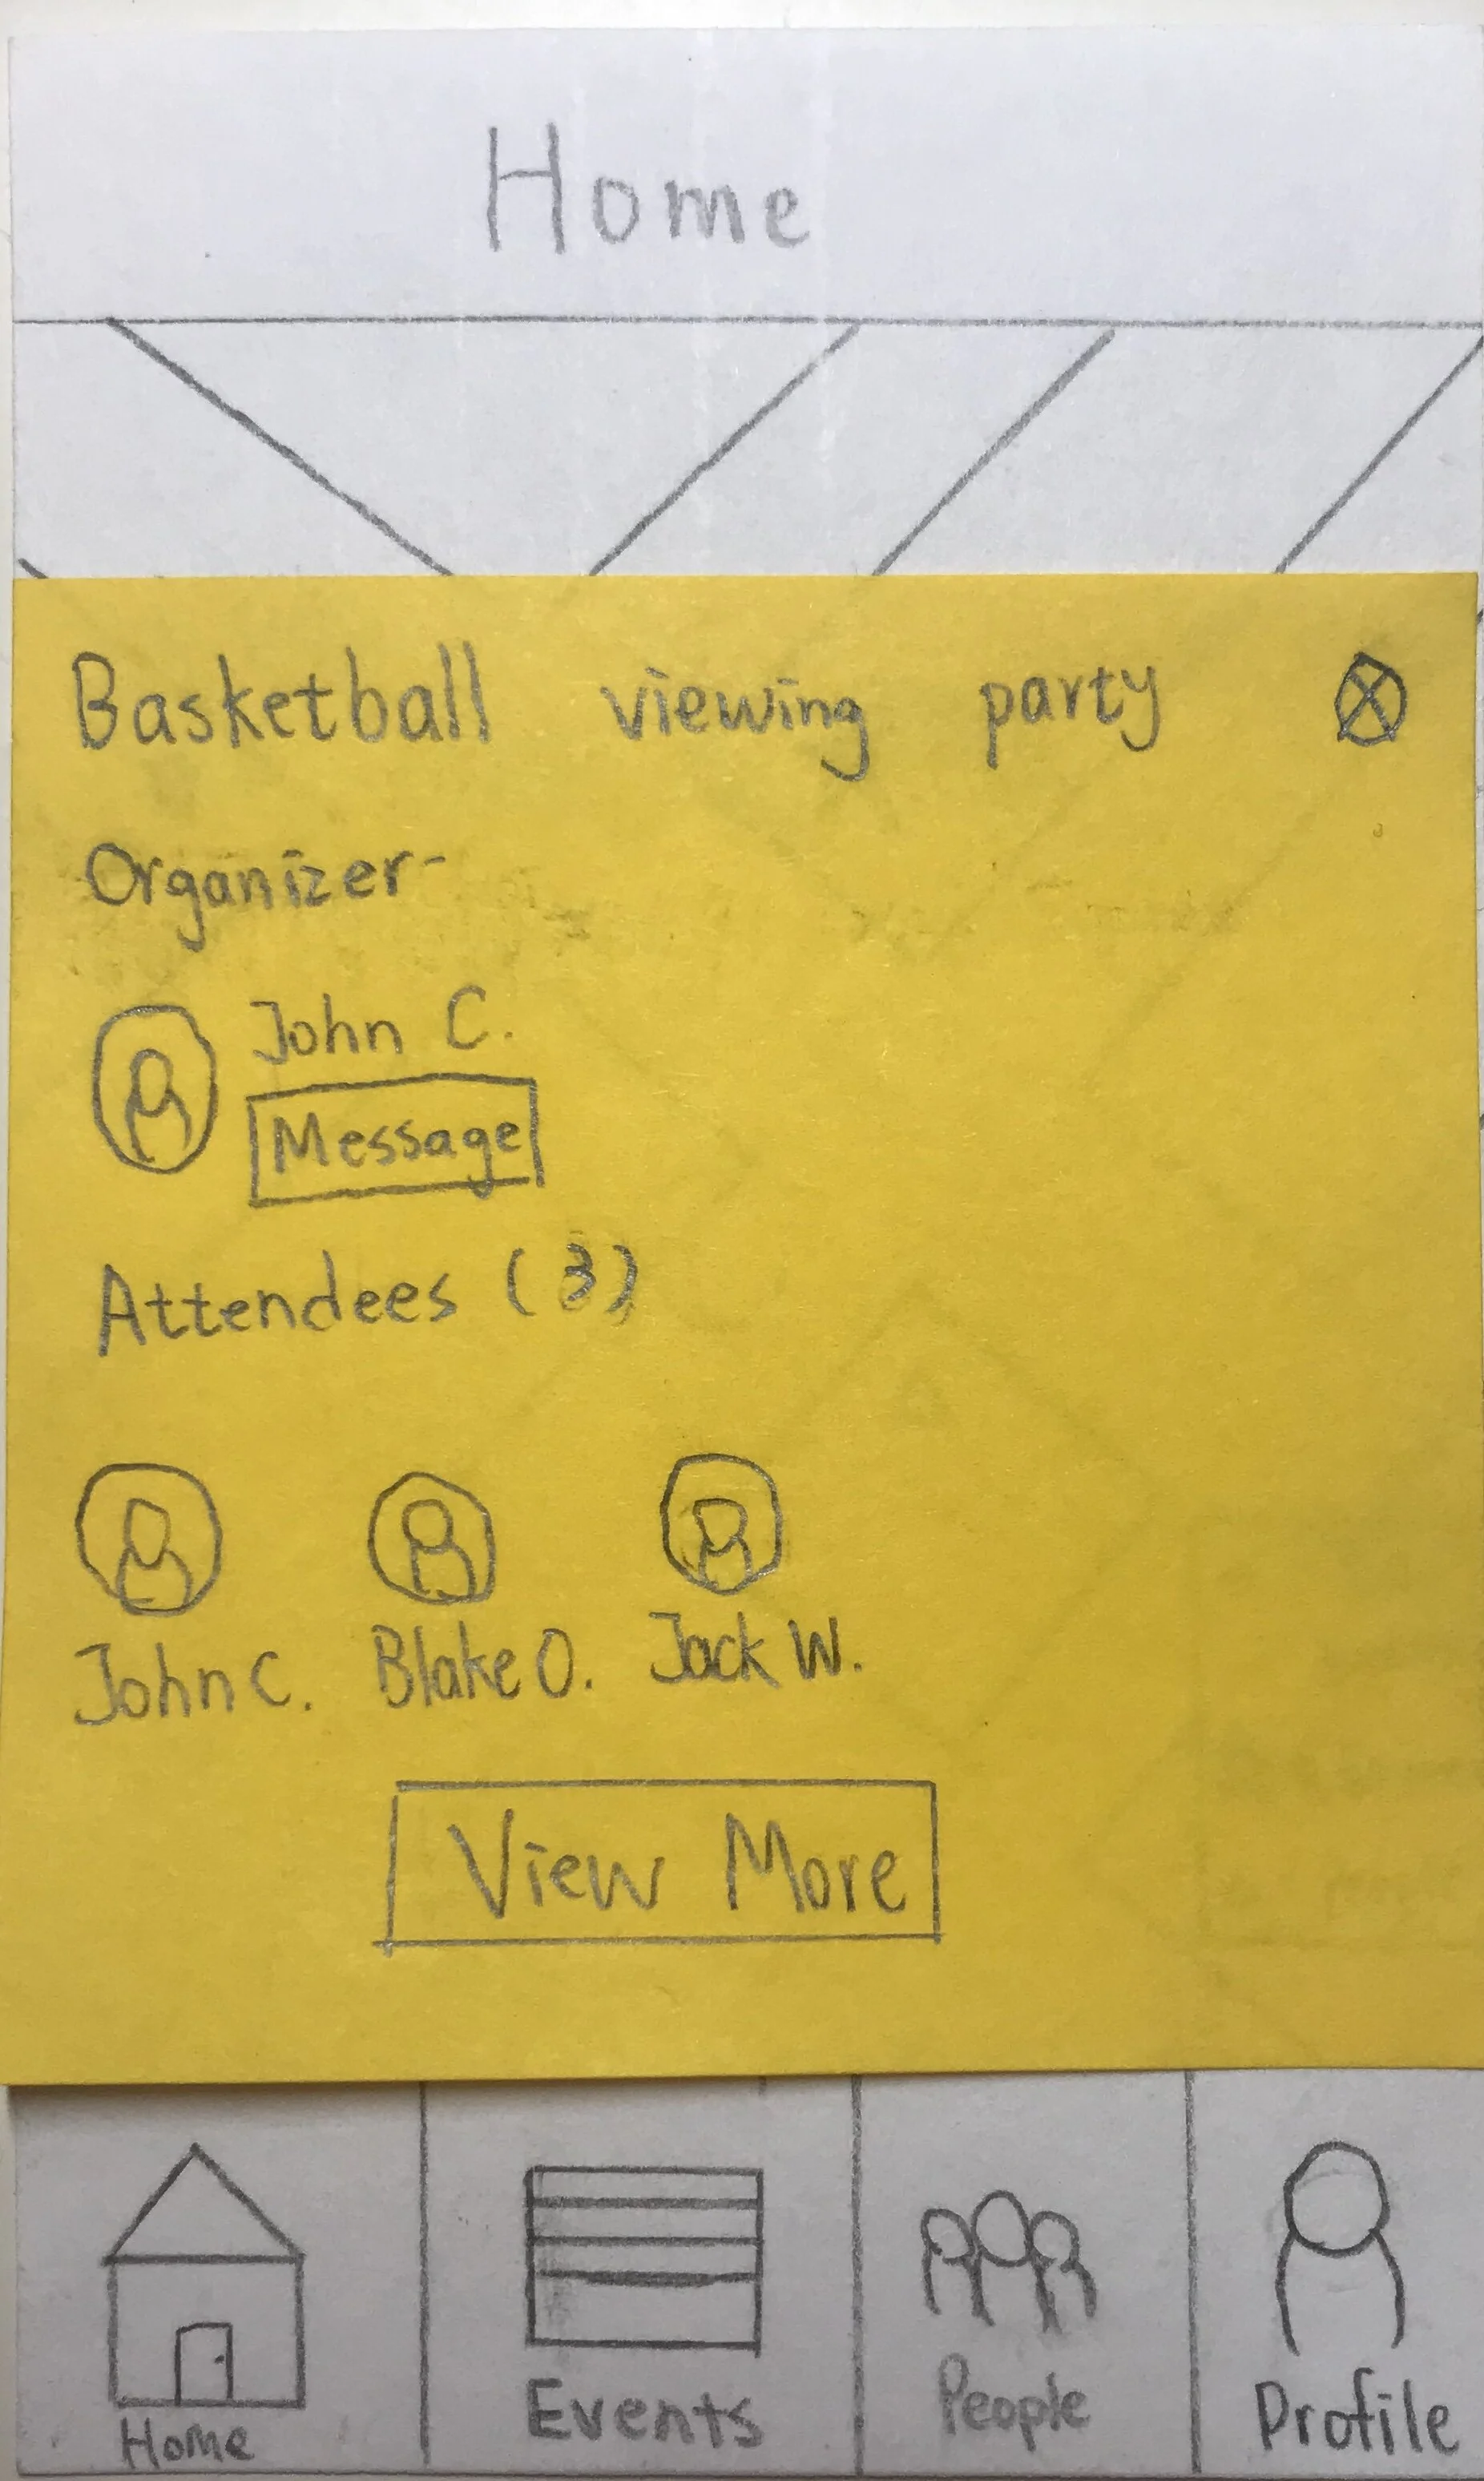 Home
Basketball viewing party
Organizer-
John C.
Message
Attendees (3)
John C. Blake O. Jack W.
View More
Home Events People Profile